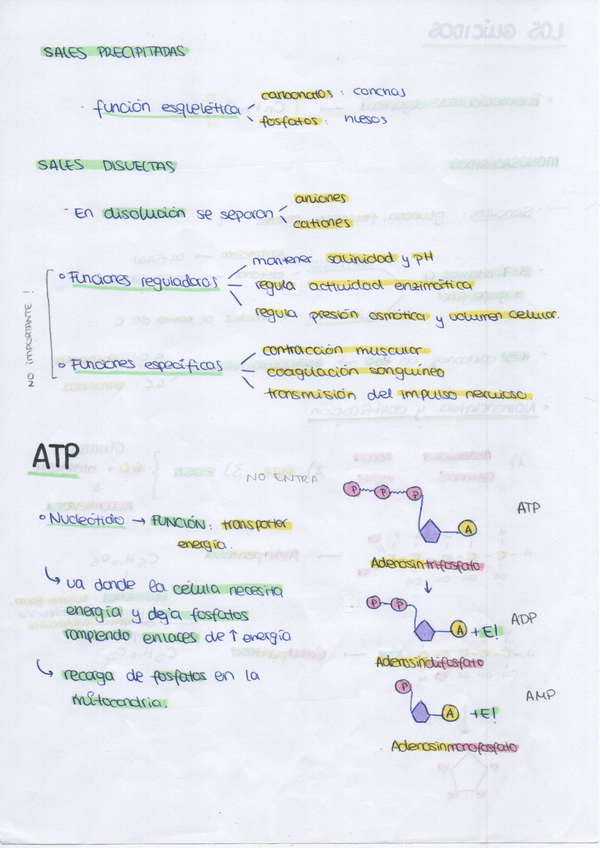 SALES PRECIPITADAS
· función esquelética
carbonatos : conchas
fosfatos : huesos
SALES DISUELTAS
- En disolución se separan
aniones
cationes
NO IMPORTANTE !
Funciones reguladoras
mantener salinidad y pH
regula actividad enzimática
regula presión osmótica y volumen celular.
Funciones específicas
contracción muscular
coagulación sanguínea
transmisión del impulso nervioso
ATP
NO ENTRA
Nucleótido → FUNCIÓN: transportar
energía.
↳ va donde la célula necesita
energía y deja fosfatos
rompiendo enlaces de ↑ energía
↳ recarga de fosfatos en la
mitocondria.
P P P A ATP
Adenosintrifosfato
↓
P P A +E! ADP
Adenosindifosfato
P A +E! AMP
Adenosinmonofosfato
LOS GLÚCIDOS
MONOSACÁRIDOS